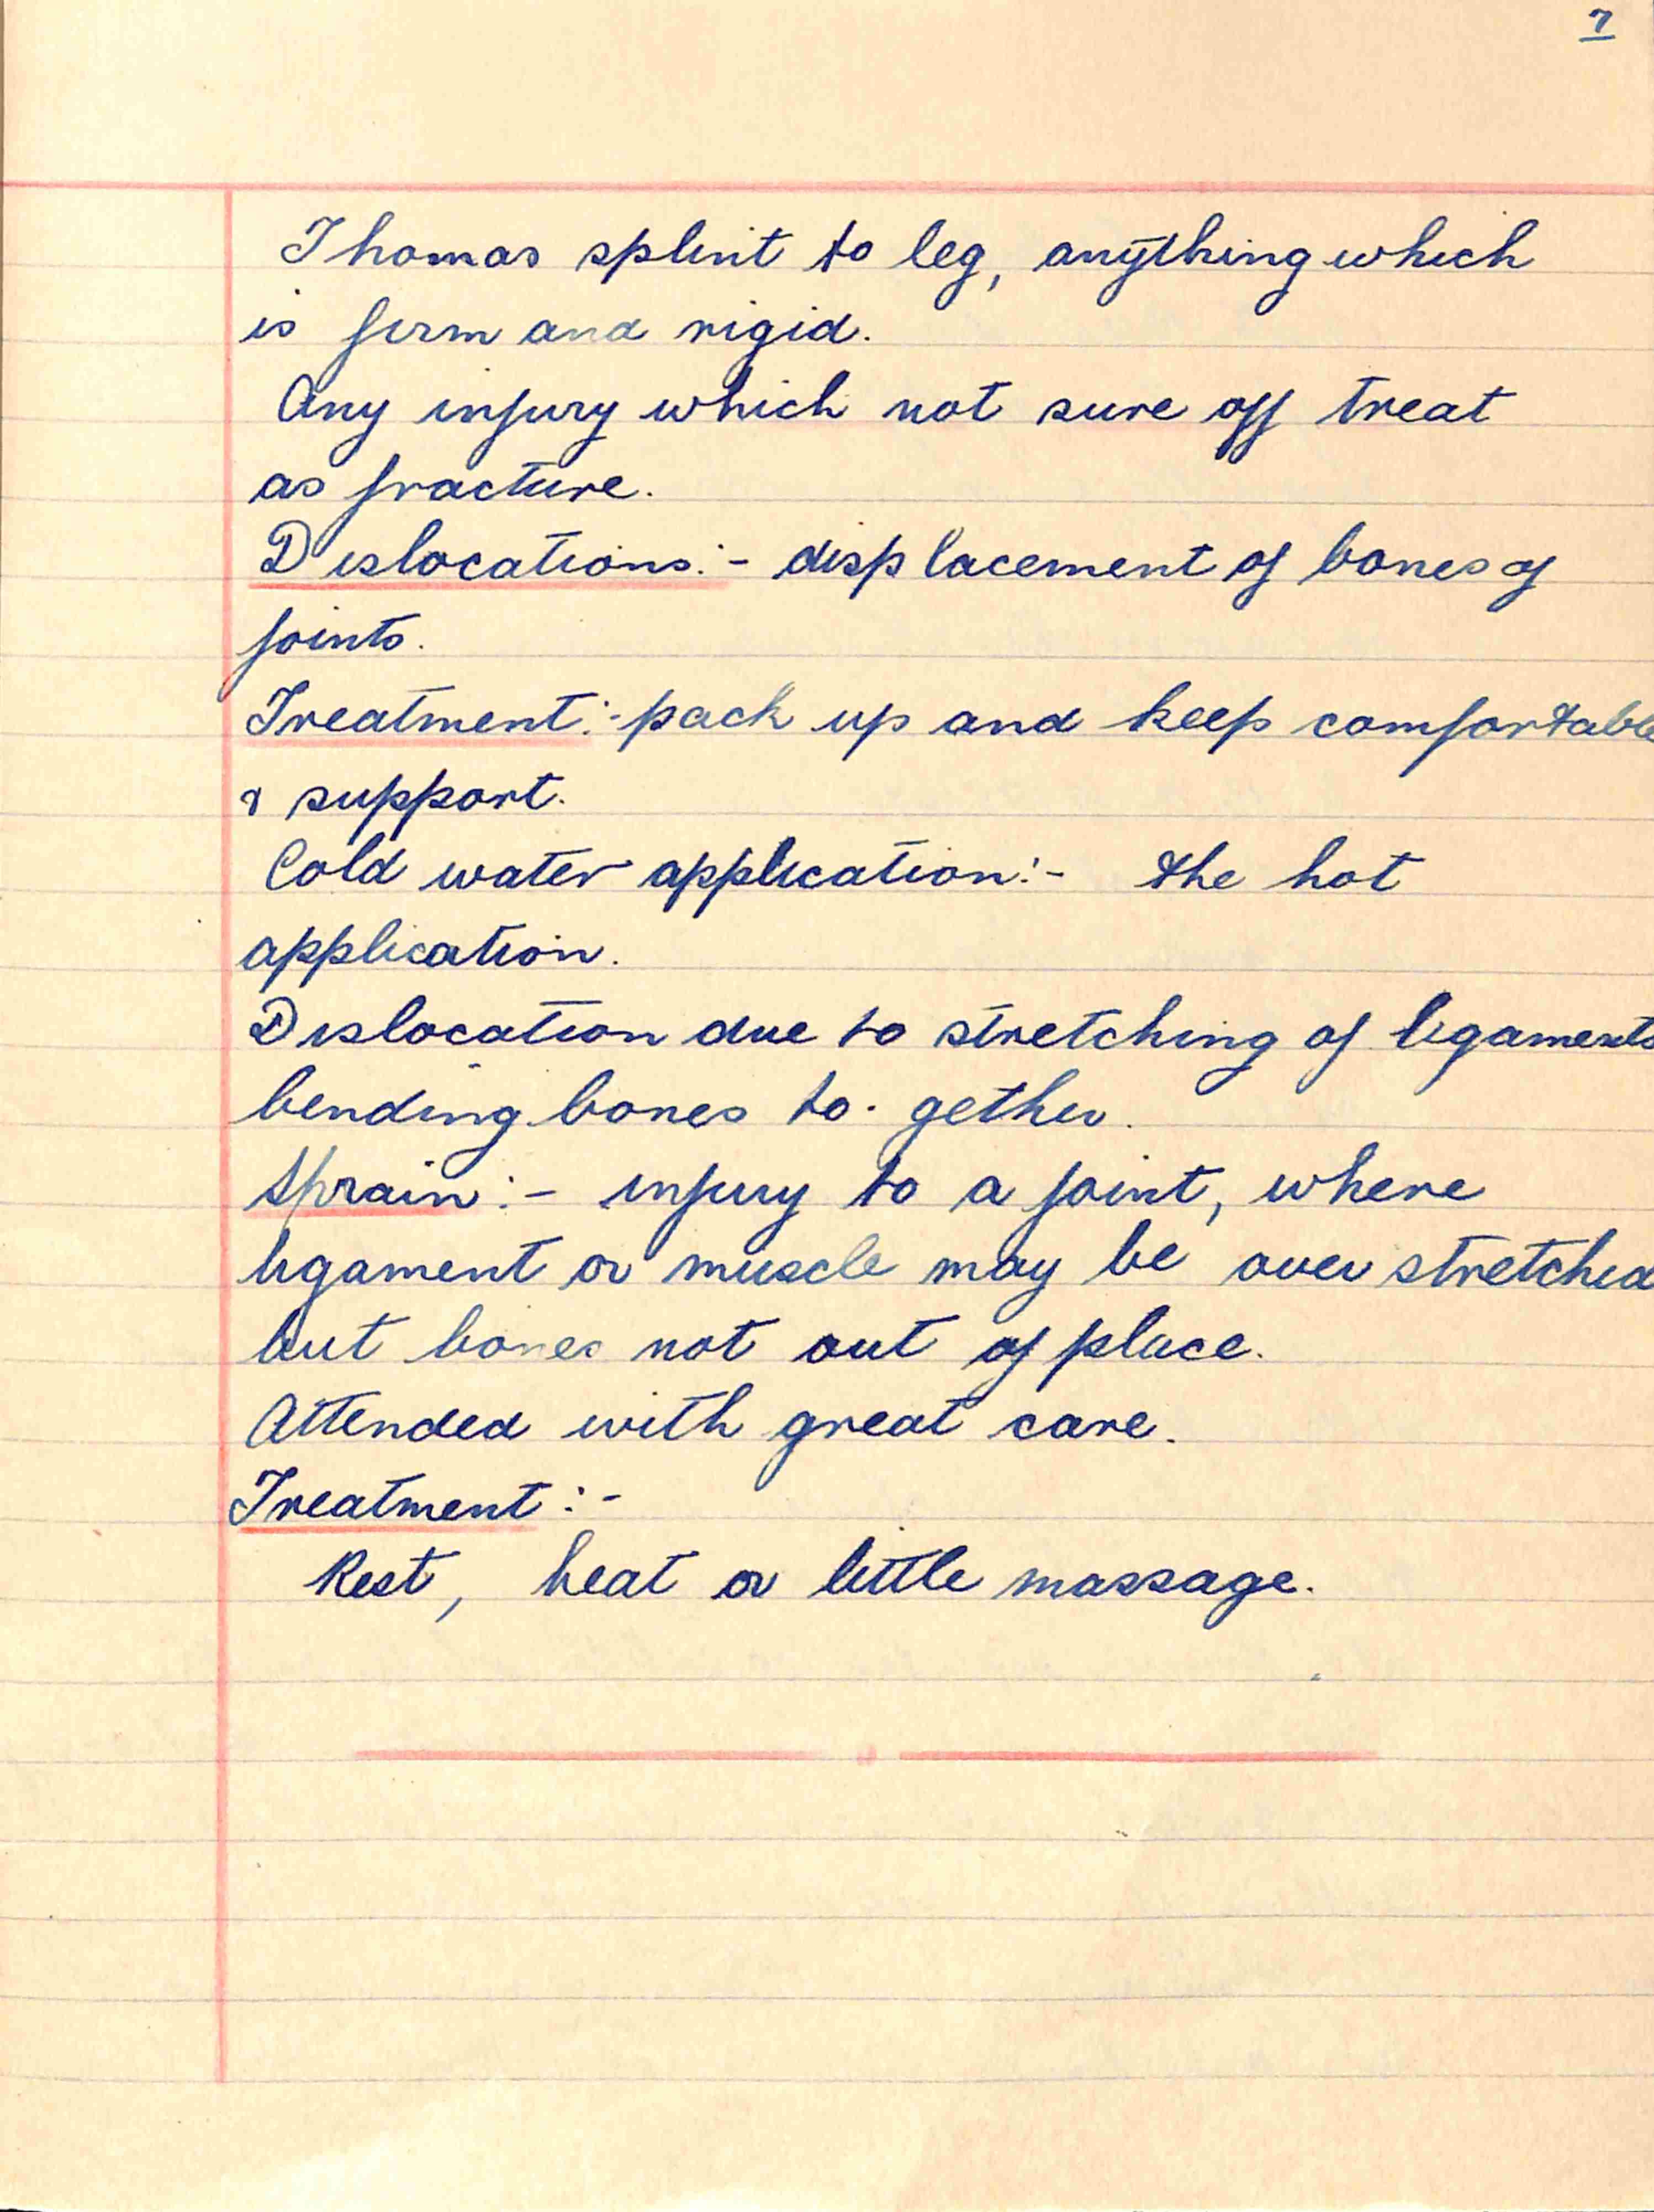 7
Thomas splint to leg, anything which
is firm and rigid.
Any injury which not sure off treat
as fracture.
Dislocations:- displacement of bones of
joints.
Treatment:- pack up and keep comfortable
& support.
Cold water application:- the hot
application.
Dislocation due to stretching of ligaments
bending bones to. gether.
Sprain:- injury to a joint, where
ligament or muscle may be over stretched
but bones not out of place.
Attended with great care.
Treatment:-
Rest, heat or little massage.